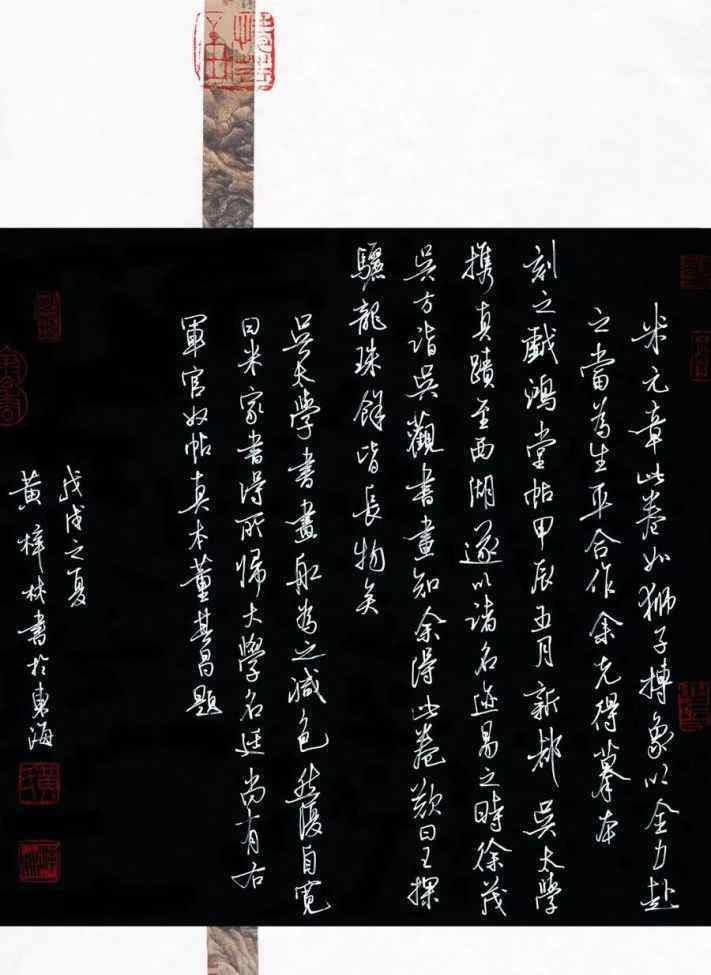 米元章此卷如獅子搏象以全力赴
之當為生平合作余先得摹本
刻之戲鴻堂帖甲辰五月新都吳太學
攜真蹟至西湖遂以諸名迹易之時徐茂
吳方詣吳觀書畫知余得此卷歎曰已探
驪龍珠餘皆長物矣
吳太學書畫船為之減色然復自寬
曰米家書得所歸太學名廷尚有右
軍官奴帖真本董其昌題
戊戌之夏
黃梓林書於東海